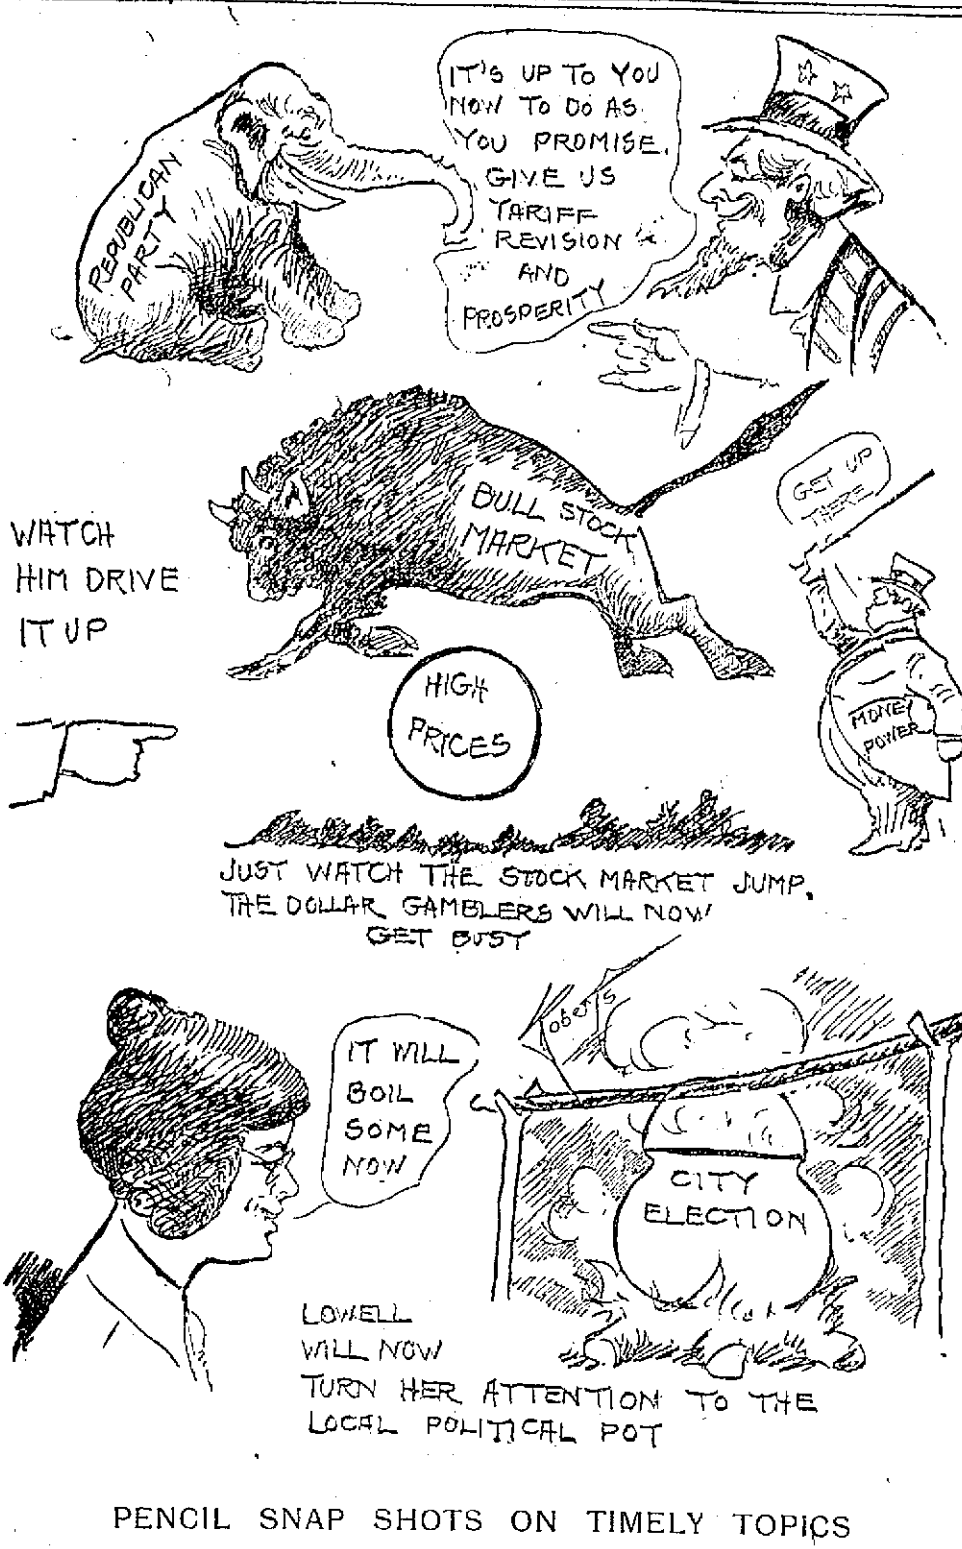 IT'S UP TO YOU
NOW TO DO AS
YOU PROMISE.
GIVE US
TARIFF
REVISION
AND
PROSPERITY
REPUBLICAN
PARTY
BULL STOCK
MARKET
GET UP
THERE
WATCH
HIM DRIVE
IT UP
HIGH
PRICES
MONEY
POWER
JUST WATCH THE STOCK MARKET JUMP.
THE DOLLAR GAMBLERS WILL NOW
GET BUSY
IT WILL
BOIL
SOME
NOW
CITY
ELECTION
LOWELL
WILL NOW
TURN HER ATTENTION TO THE
LOCAL POLITICAL POT
PENCIL SNAP SHOTS ON TIMELY TOPICS